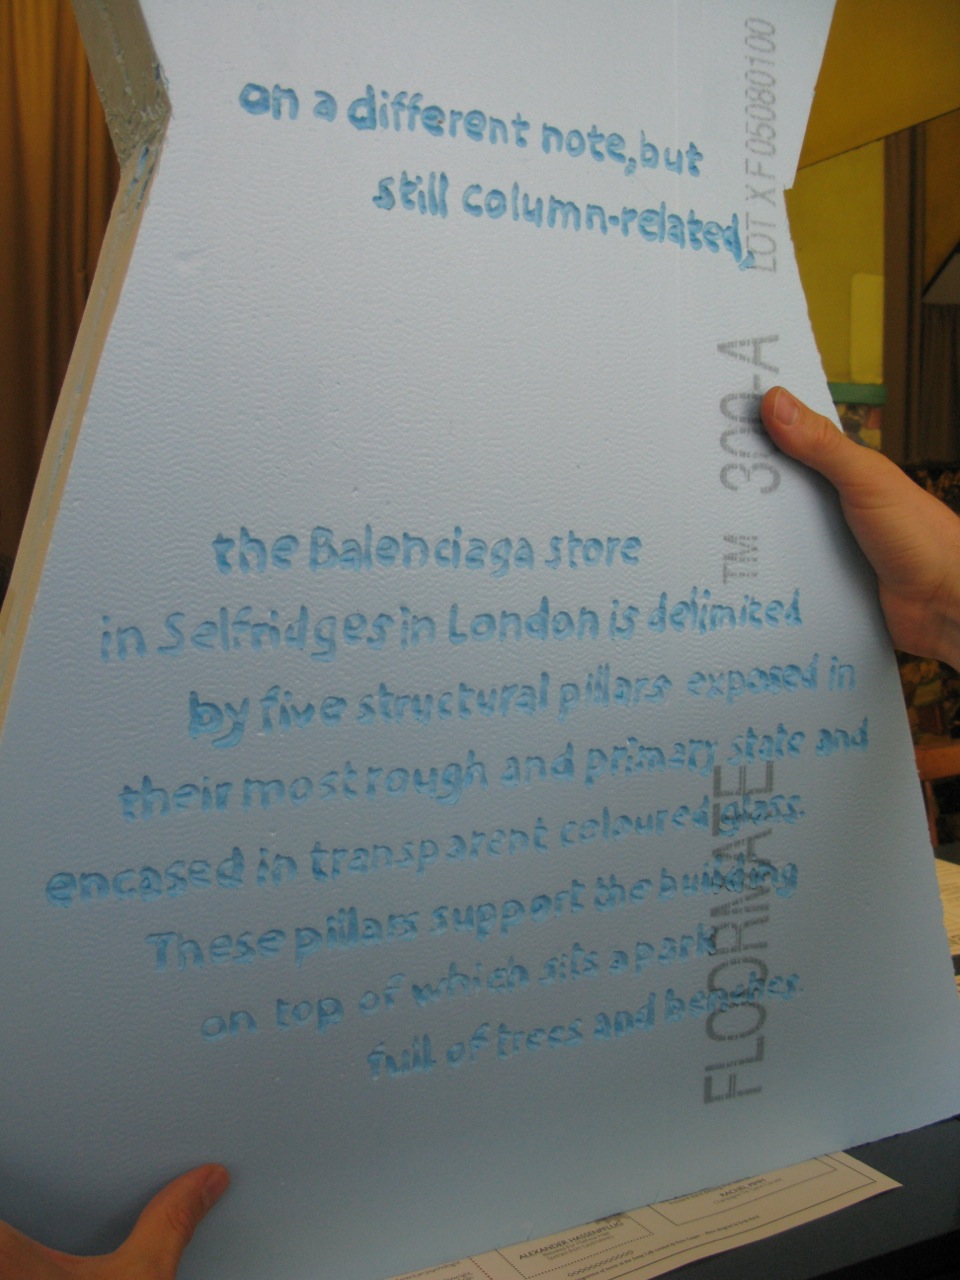 on a different note, but
still column-related,
the Balenciaga store
in Selfridges in London is delimited
by five structural pillars exposed in
their most rough and primary state and
encased in transparent coloured glass.
These pillars support the building
on top of which sits a park
full of trees and benches.
FLOORMATE TM 300-A LOT XF05080100
ALEXANDER HASSENPFLUG
RACHEL PIMM